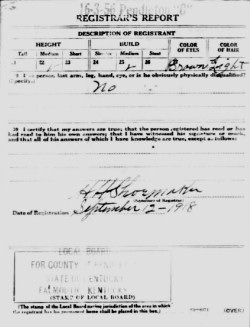 16-3-56 Pendleton "C"
REGISTRAR'S REPORT
DESCRIPTION OF REGISTRANT
HEIGHT BUILD COLOR OF EYES COLOR OF HAIR
Tall Medium Short Slender Medium Stout
21 22 23 24 25 26 27 Brown 28 Light
29 Has person lost arm, leg, hand, eye, or is he obviously physically disqualified?
(Specify.)
No
30 I certify that my answers are true; that the person registered has read or has
had read to him his own answers; that I have witnessed his signature or mark,
and that all of his answers of which I have knowledge are true, except as follows:
Shoemaker
(Signature of Registrar)
Date of Registration September 12-1918
LOCAL BOARD
FOR COUNTY
STATE OF KENTUCKY
FALMOUTH, KENTUCKY
(STAMP OF LOCAL BOARD)
(The stamp of the Local Board having jurisdiction of the area in which
the registrant has his permanent home shall be placed in this box.)
(OVER)